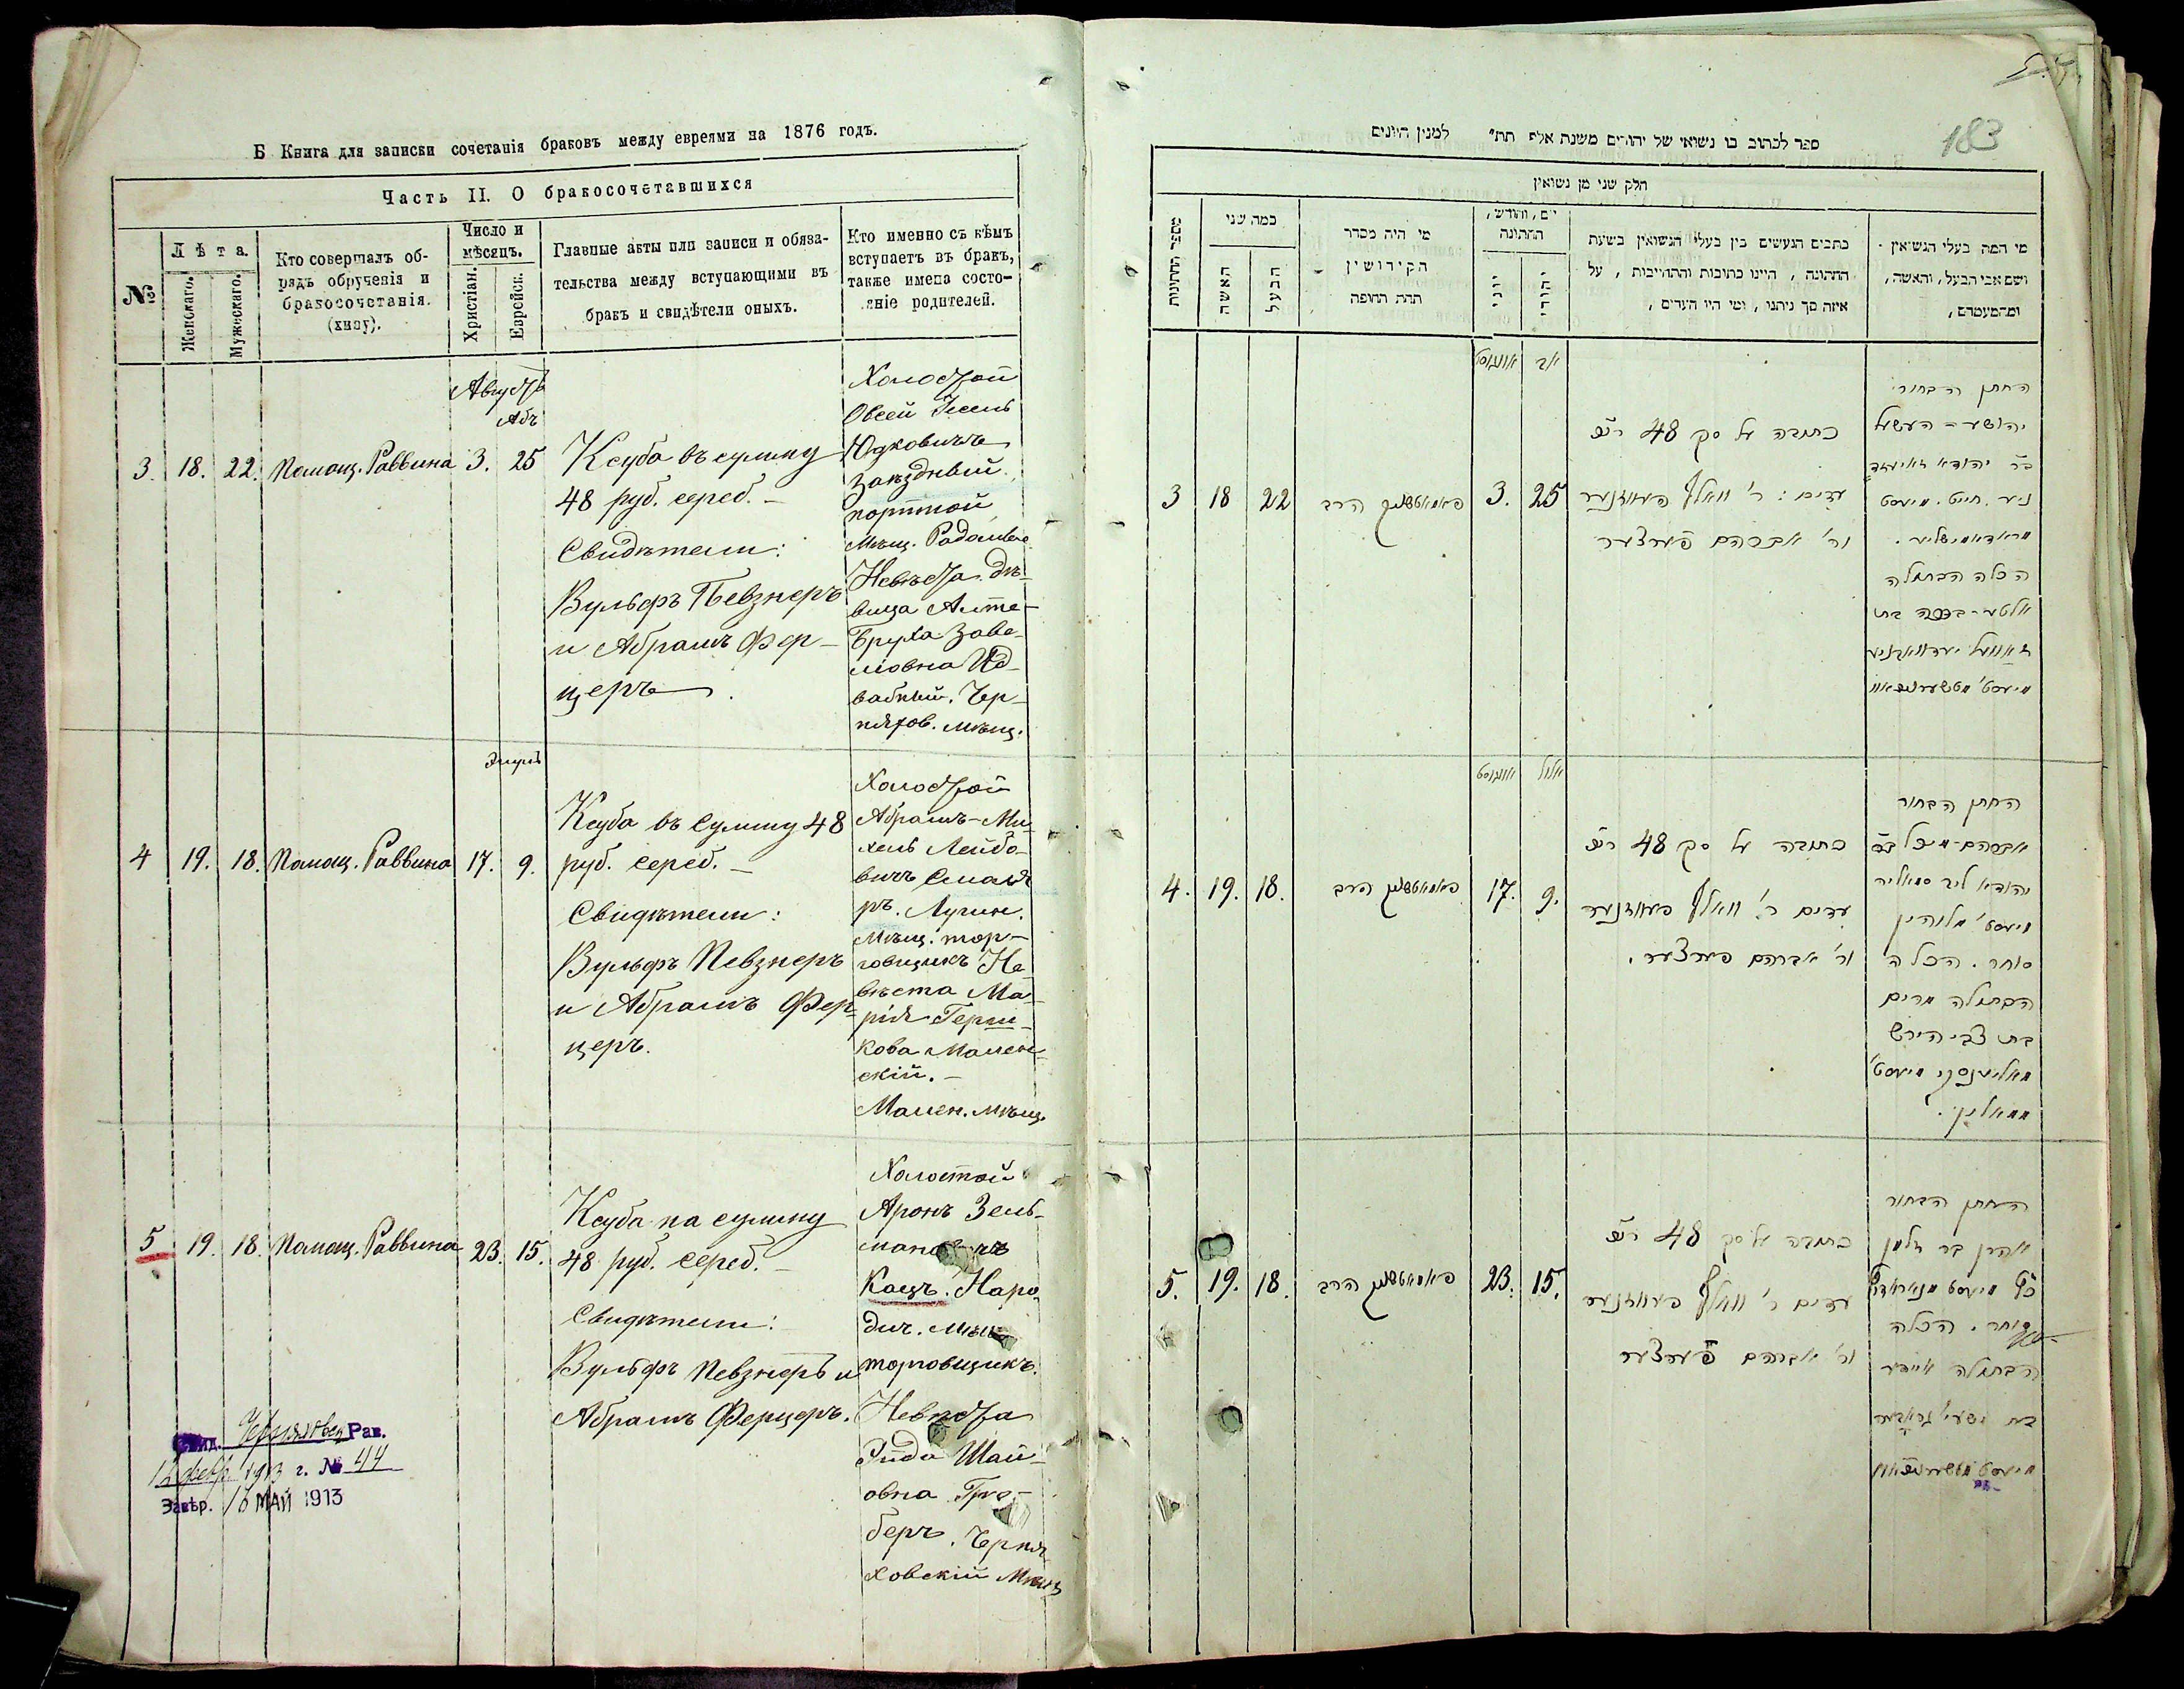 Б Книга для записки сочетанія браковъ между евреями на 1876 годъ.
Часть II. О бракосочетавшихся
№
Лѣта.
Женскаго.
Мужескаго.
Кто совершалъ об-
рядъ обрученія и
бракосочетанія.
(хипу).
Число и
мѣсяцъ.
Христіан.
Еврейск.
Главные акты или записи и обяза-
тельства между вступающими въ
бракъ и свидѣтели оныхъ.
Кто именно съ кѣмъ
вступаетъ въ бракъ,
также имена состо-
яніе родителей.
Августъ
Абъ
3. 18. 22. Помощ. Раввина 3. 25
Ксуба въ сумму
48 руб. сереб. -
Свидѣтели:
Вульфъ Певзнеръ
и Абрамъ Фер-
церъ.
Холостой
Овсей
Юдковичъ
портной
Мѣщ.
Невѣста дѣ-
вица Алте-
Бруха Заве-
ловна
Чер-
няхов. мѣщ.
Элулъ
4 19. 18. Помощ. Раввина 17. 9.
Ксуба въ сумму 48
руб. сереб. -
Свидѣтели:
Вульфъ Певзнеръ
и Абрамъ Фер-
церъ.
Холостой
Абрамъ-Ми-
хель Лейбо-
вичъ
Лугин.
мѣщ. тор-
говщикъ Не-
вѣста Ма-
рія Герш-
кова Мален-
скій. -
Мален. мѣщ.
5 19. 18. Помощ. Раввина 23. 15.
Ксуба на сумму
48 руб. сереб. -
Свидѣтели:
Вульфъ Певзнеръ и
Абрамъ Ферцеръ.
Холостой
Аронъ Зель-
мановичъ
Кацъ. Наро-
дич. мѣщ.
торговщикъ.
Невѣста
Шай-
овна Гре-
беръ. Черня-
ховскій мѣщ
Рав.
1913 г. № 44
Завѣр. 16 МАЙ 1913
183
ספר לכתוב בו נשואי של יהודים משנת אלף תת״ למנין היונים
חלק שני מן נשואין
מספר החתונות
כמה שני
האשה
הבעל
מי היה מסדר
הקידושין
תחת החופה
יום, וחודש,
החתונה
יווני
יהודי
כתבים הנעשים בין בעלי הנשואין בשעת
החתונה, היינו כתובות והתחייבות, על
איזה סך ניתנו, ומי היו העדים,
מי המה בעלי הנשואין
ושם אבי הבעל, והאשה,
ומהמעמדם,
אויגוסט אב
3 18 22 פאמאטשניק הרב 3. 25
כתובה על סך 48 רׄכ
עדים: ר' וואלף פעווזנער
ור' אברהם פערצער
החתן הבחור
יהושע - העשל
הכלה הבתולה
אויגוסט אלול
4. 19. 18. פאמאטשניק הרב 17. 9.
כתובה על סך 48 רׄכ
עדים ר' וואלף פעווזנער
ור' אברהם פערצער.
החתן הבחור
אברהם-מיכל בר
יהודא ליב
סוחר. הכלה
הבתולה מרים
בת צבי הירש
5. 19. 18. פאמאטשניק הרב 23. 15.
כתובה על סך 48 רׄכ
עדים ר' וואלף פעווזנער
ור' אברהם פערצער
החתן הבחור
אהרן בר זלמן
סוחר. הכלה
הבתולה